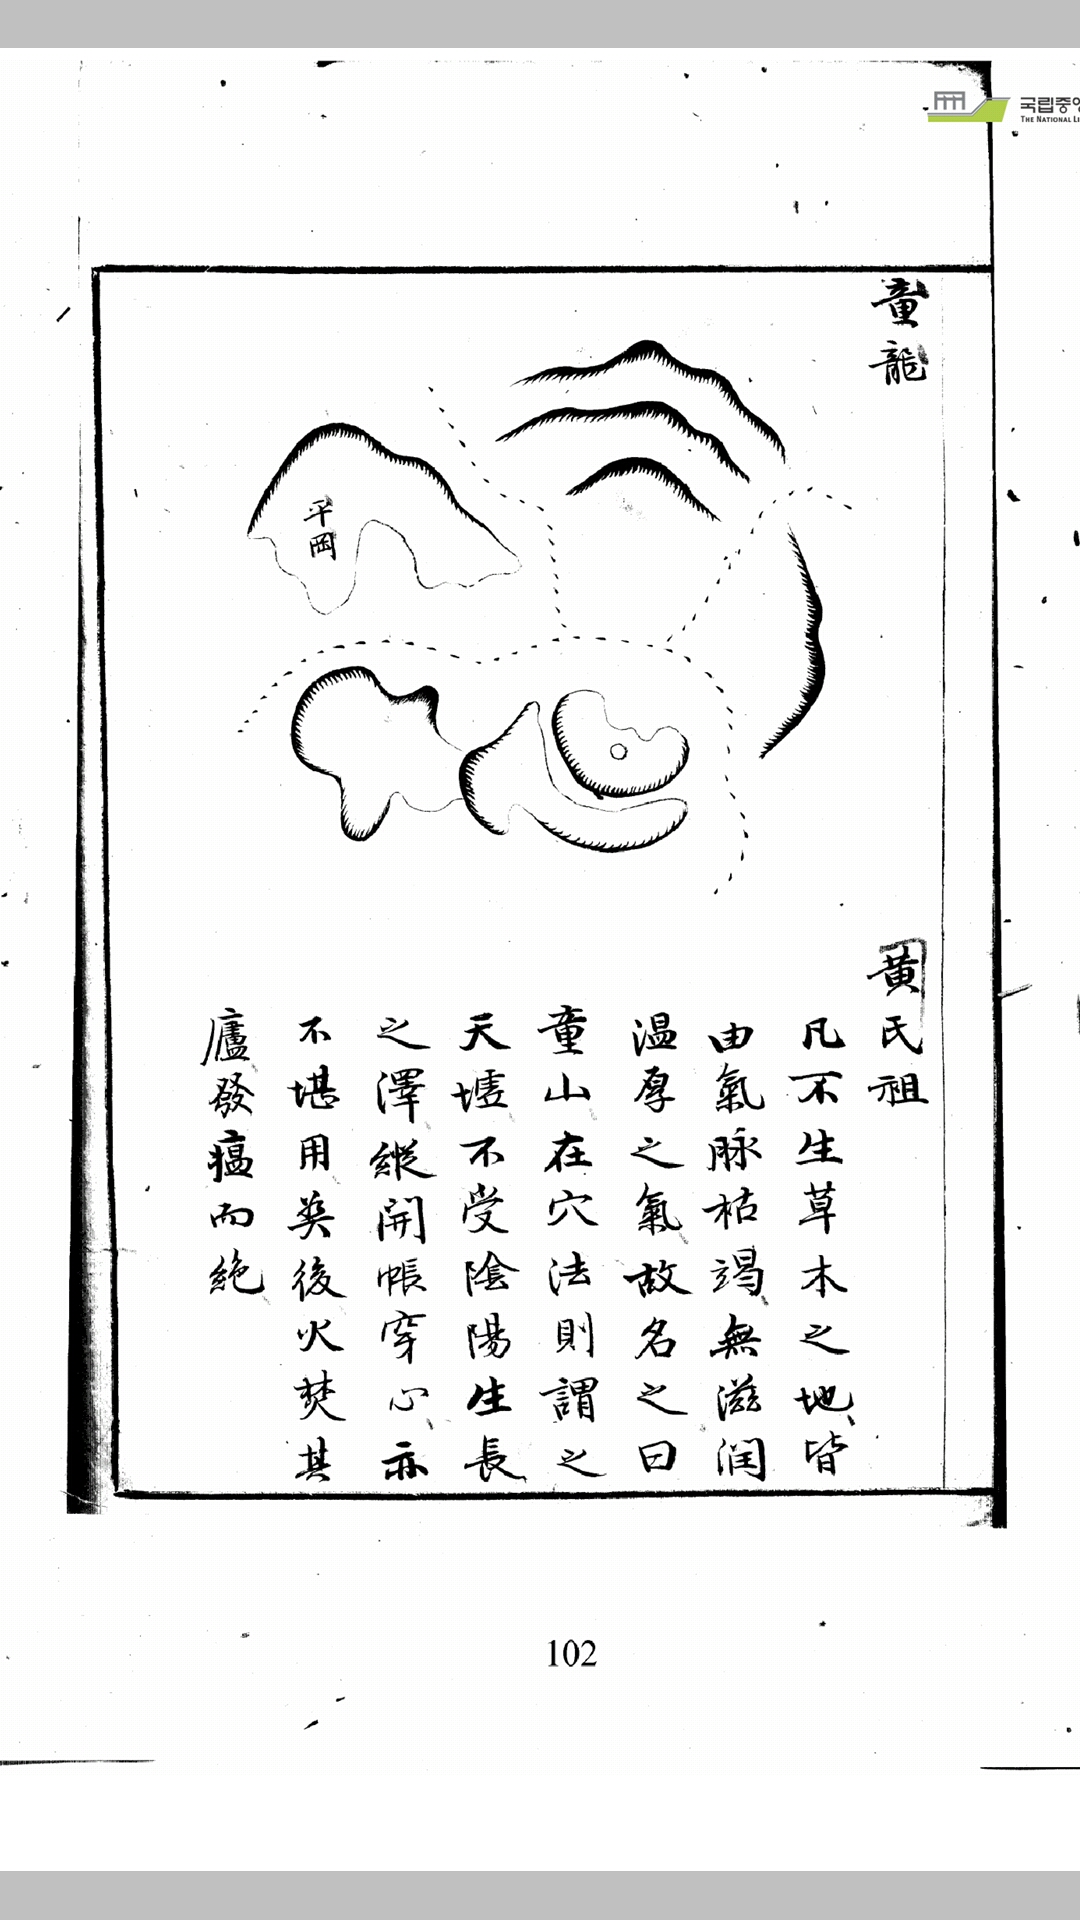 국립중앙
THE NATIONAL LI
童龍
平岡
黃氏祖
凡不生草木之地皆
由氣脉枯竭無滋潤
温厚之氣故名之曰
童山在穴法則謂之
天墟不受陰陽生長
之澤縱開帳穿心亦
不堪用葬後火焚其
廬發瘟而絶
102